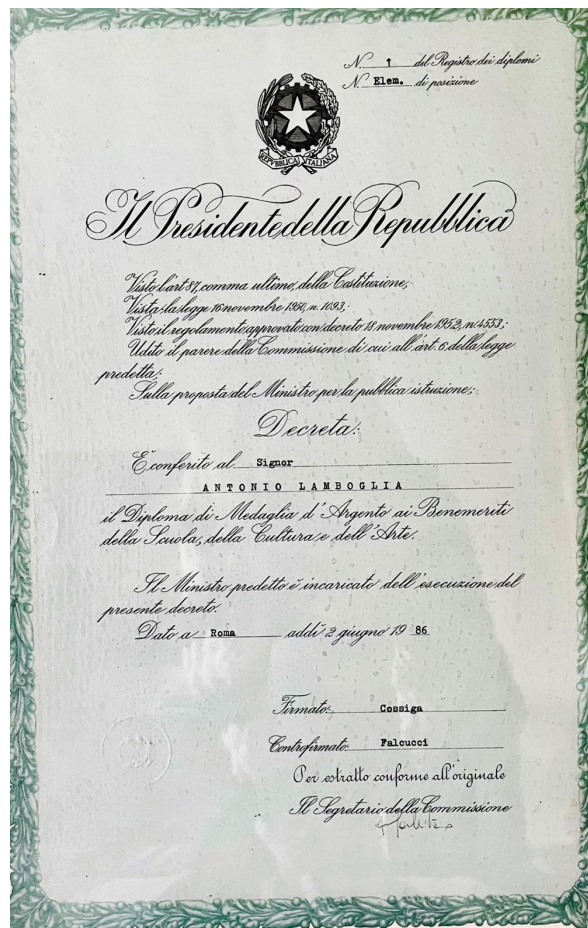 N. 1 del Registro dei diplomi
N. Elem. di posizione
REPVBBLICA ITALIANA
Il Presidente della Repubblica
Visto l'art. 87, comma ultimo, della Costituzione;
Vista la legge 16 novembre 1950, n. 1093;
Visto il regolamento approvato con decreto 18 novembre 1952, n. 4553;
Udito il parere della Commissione di cui all'art. 6 della legge
predetta;
Sulla proposta del Ministro per la pubblica istruzione;
Decreta:
È conferito al Signor
ANTONIO LAMBOGLIA
il Diploma di Medaglia d'Argento ai Benemeriti
della Scuola, della Cultura e dell'Arte.
Il Ministro predetto è incaricato dell'esecuzione del
presente decreto.
Dato a Roma addì 2 giugno 19 86
Firmato: Cossiga
Controfirmato: Falcucci
Per estratto conforme all'originale
Il Segretario della Commissione